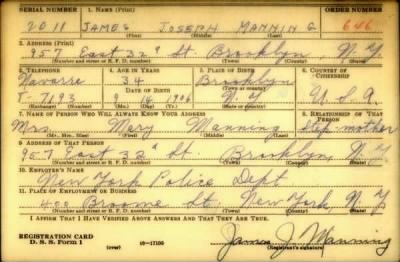 SERIAL NUMBER 1. NAME (Print) ORDER NUMBER
2011 JAMES JOSEPH MANNING 646
(First) (Middle) (Last)
2. ADDRESS (Print)
957 East 32d St Brooklyn N.Y.
(Number and street or R. F. D. number) (Town) (County) (State)
3. TELEPHONE 4. AGE IN YEARS 5. PLACE OF BIRTH 6. COUNTRY OF CITIZENSHIP
Navarre 34 Brooklyn
DATE OF BIRTH (Town or county)
8-7193 9 14 1906 N.Y. U.S.A.
(Exchange) (Number) (Mo.) (Day) (Yr.) (State or country)
7. NAME OF PERSON WHO WILL ALWAYS KNOW YOUR ADDRESS 8. RELATIONSHIP OF THAT PERSON
Mrs. Mary Manning step-mother
(Mr., Mrs., Miss) (First) (Middle) (Last)
9. ADDRESS OF THAT PERSON
957 East 32d St Brooklyn, N.Y.
(Number and street or R. F. D. number) (Town) (County) (State)
10. EMPLOYER'S NAME
New York Police Dept
11. PLACE OF EMPLOYMENT OR BUSINESS
400 Broome St. New York, N.Y.
(Number and street or R. F. D. number) (Town) (County) (State)
I AFFIRM THAT I HAVE VERIFIED ABOVE ANSWERS AND THAT THEY ARE TRUE.
REGISTRATION CARD
D. S. S. Form 1 (over) 16-17105 James J Manning
(Registrant's signature)